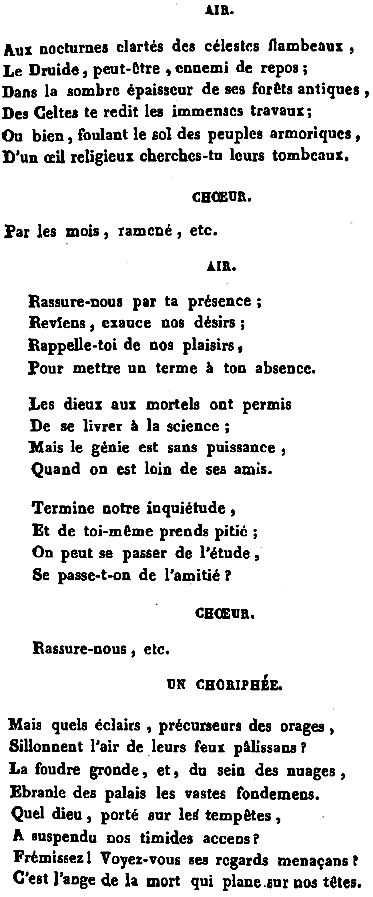 AIR.
Aux nocturnes clartés des célestes flambeaux ,
Le Druide, peut-être , ennemi de repos ;
Dans la sombre épaisseur de ses forêts antiques ,
Des Celtes te redit les immenses travaux ;
Ou bien , foulant le sol des peuples armoriques ,
D'un œil religieux cherches-tu leurs tombeaux.
CHŒUR.
Par les mois , ramené , etc.
AIR.
Rassure-nous par ta présence ;
Reviens , exauce nos désirs ;
Rappelle-toi de nos plaisirs ,
Pour mettre un terme à ton absence.
Les dieux aux mortels ont permis
De se livrer à la science ;
Mais le génie est sans puissance ,
Quand on est loin de ses amis.
Termine notre inquiétude ,
Et de toi-même prends pitié ;
On peut se passer de l'étude ,
Se passe-t-on de l'amitié ?
CHŒUR.
Rassure-nous , etc.
UN CHORIPHÉE.
Mais quels éclairs , précurseurs des orages ,
Sillonnent l'air de leurs feux pâlissans ?
La foudre gronde , et , du sein des nuages ,
Ebranle des palais les vastes fondemens.
Quel dieu , porté sur les tempêtes ,
A suspendu nos timides accens ?
Frémissez ! Voyez-vous ses regards menaçans ?
C'est l'ange de la mort qui plane sur nos têtes.